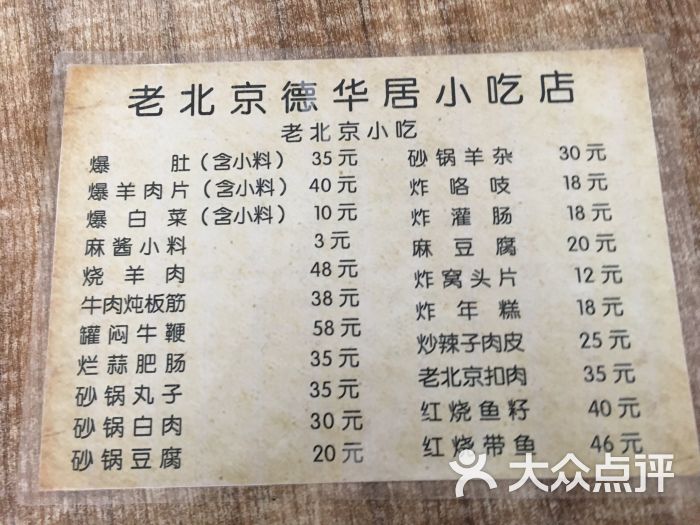 老北京德华居小吃店
老北京小吃
爆 肚（含小料） 35元
爆羊肉片（含小料） 40元
爆 白 菜（含小料） 10元
麻酱小料 3元
烧 羊 肉 48元
牛肉炖板筋 38元
罐焖牛鞭 58元
烂蒜肥肠 35元
砂锅丸子 35元
砂锅白肉 30元
砂锅豆腐 20元
砂锅羊杂 30元
炸 咯 吱 18元
炸 灌 肠 18元
麻 豆 腐 20元
炸窝头片 12元
炸 年 糕 18元
炒辣子肉皮 25元
老北京扣肉 35元
红烧鱼籽 40元
红烧带鱼 46元
大众点评